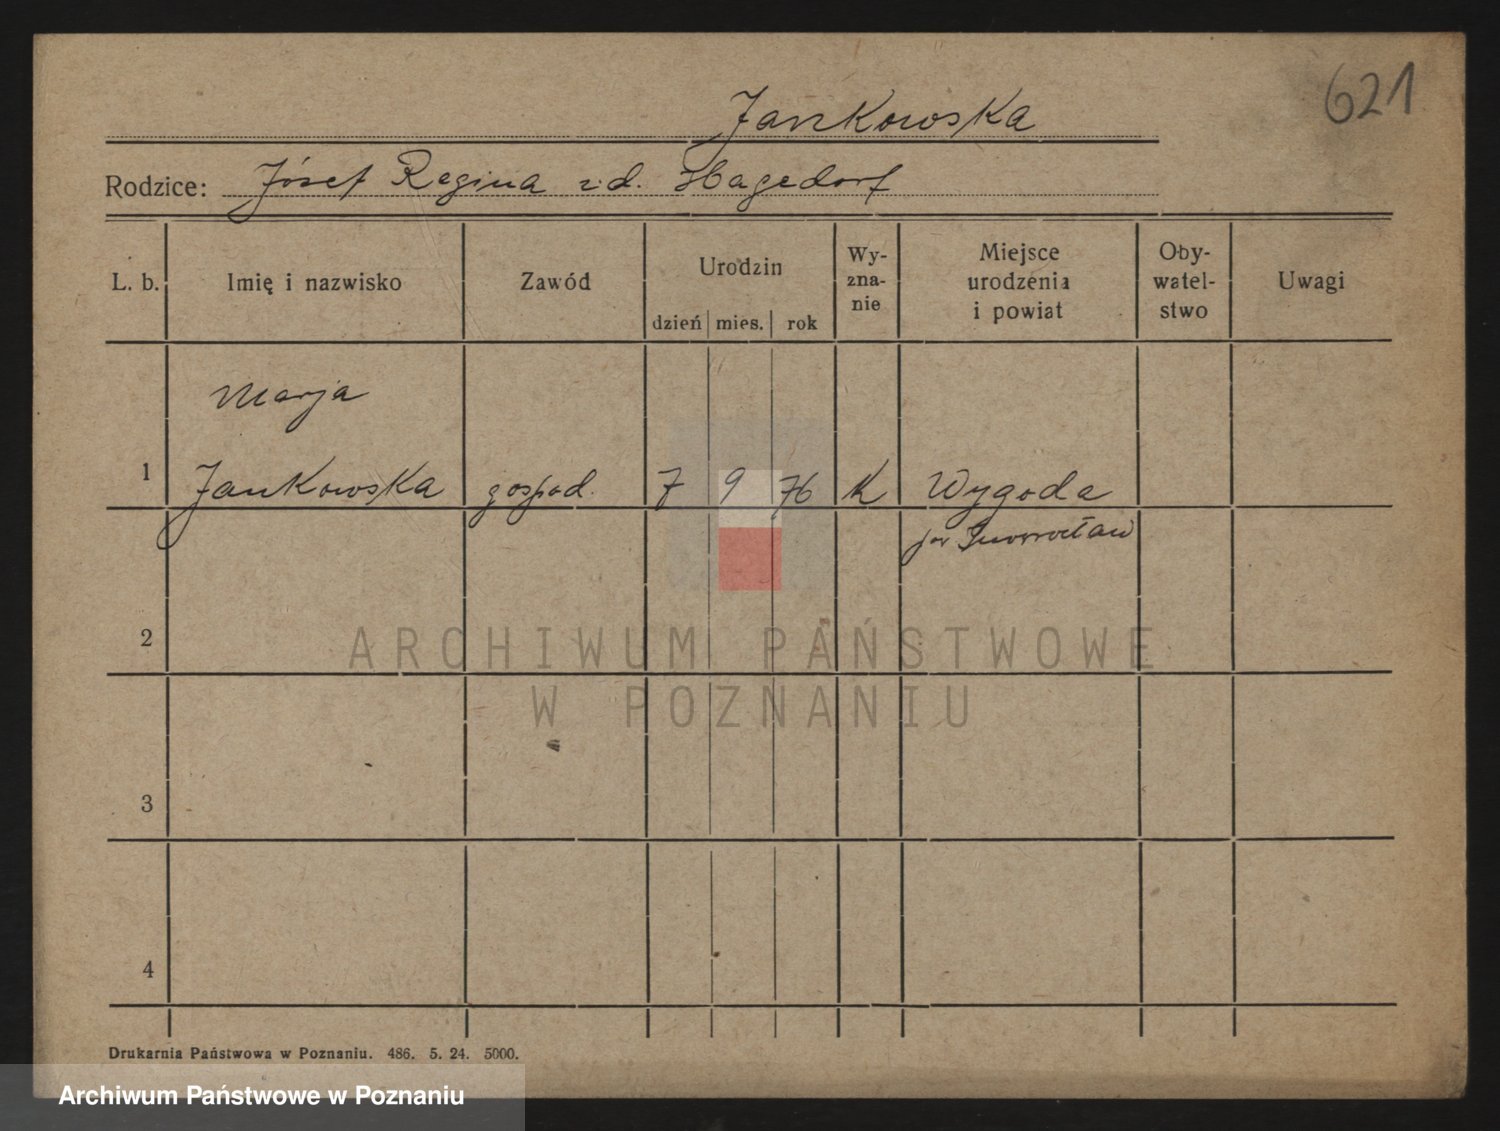 621
Jankowska
Rodzice: Józef Regina z d. Hagedorf
L. b.
Imię i nazwisko
Zawód
Urodzin
dzień
mies.
rok
Wy-
zna-
nie
Miejsce
urodzenia
i powiat
Oby-
watel-
stwo
Uwagi
Marja
1 Jankowska gospod. 7 9 76 K Wygoda
Inowrocław
2
ARCHIWUM PAŃSTWOWE
W POZNANIU
3
4
Drukarnia Państwowa w Poznaniu. 486. 5. 24. 5000.
Archiwum Państwowe w Poznaniu